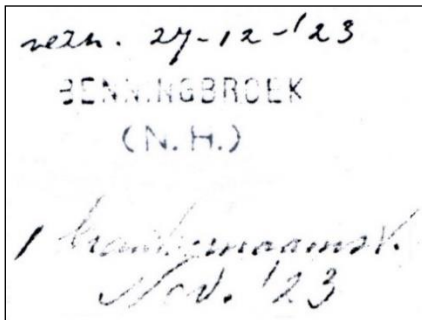 27-12-'23
BENNINGBROEK
(N.H.)
1
Nov. '23